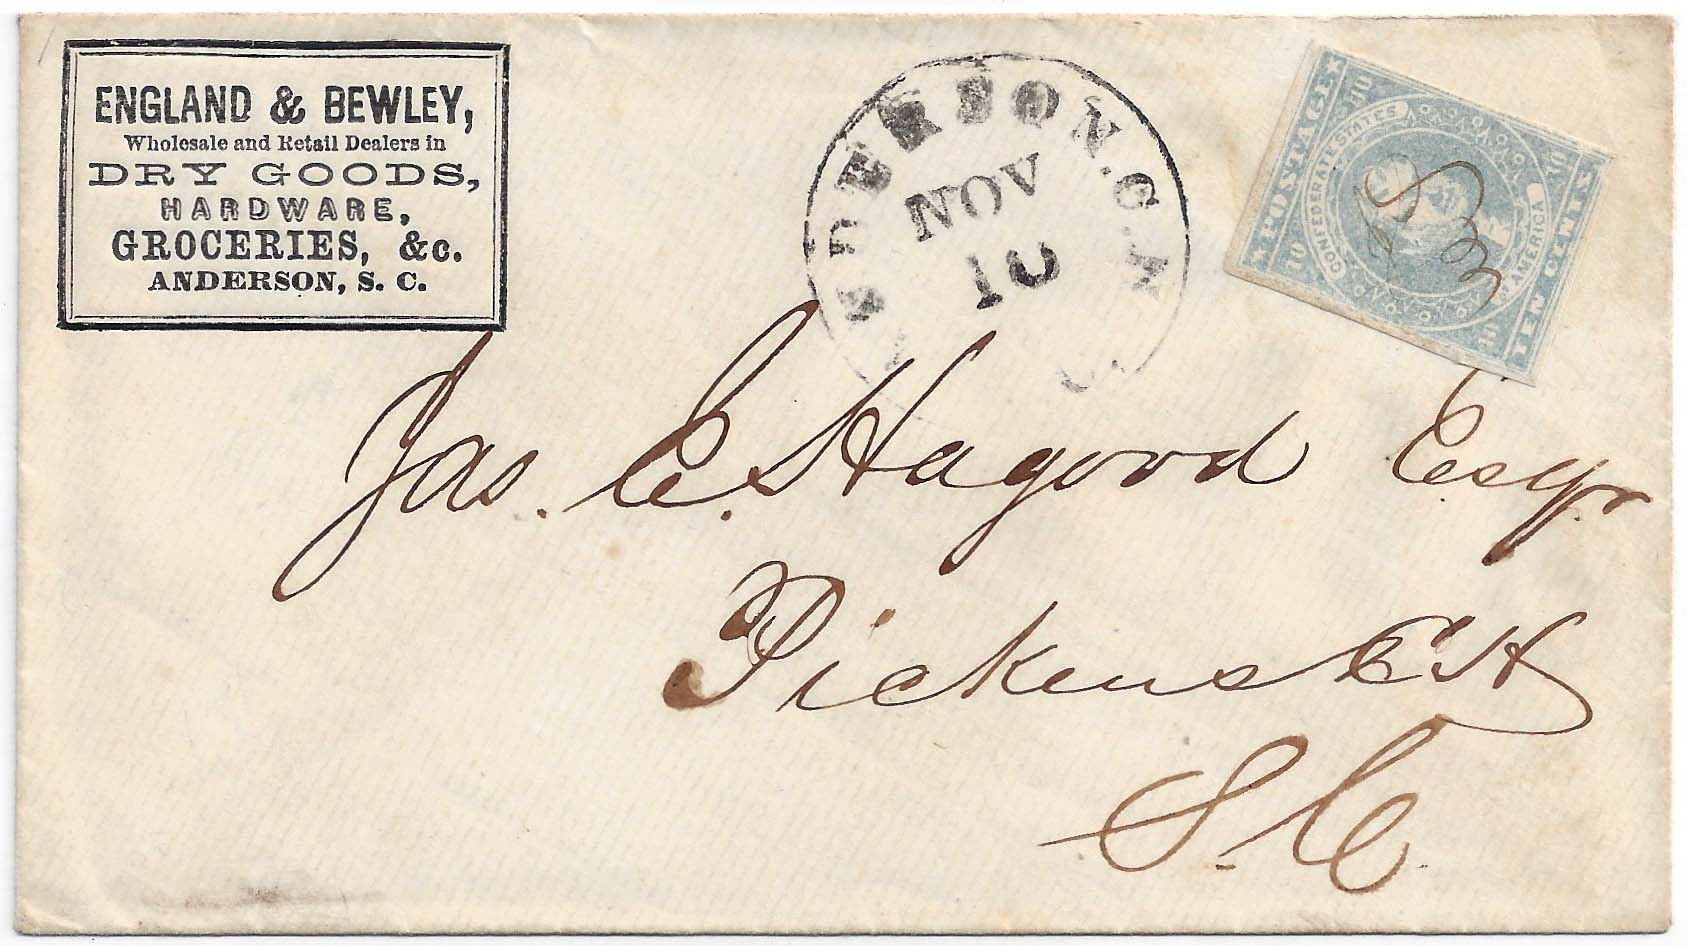 ENGLAND & BEWLEY,
Wholesale and Retail Dealers in
DRY GOODS,
HARDWARE,
GROCERIES, &c.
ANDERSON, S. C.
NDERSON. C. H
NOV
10
POSTAGE
CONFEDERATE STATES
OF AMERICA
TEN CENTS
10 10 10 10
Jas. E. Hagood Esqr
Pickens C H
S. C.